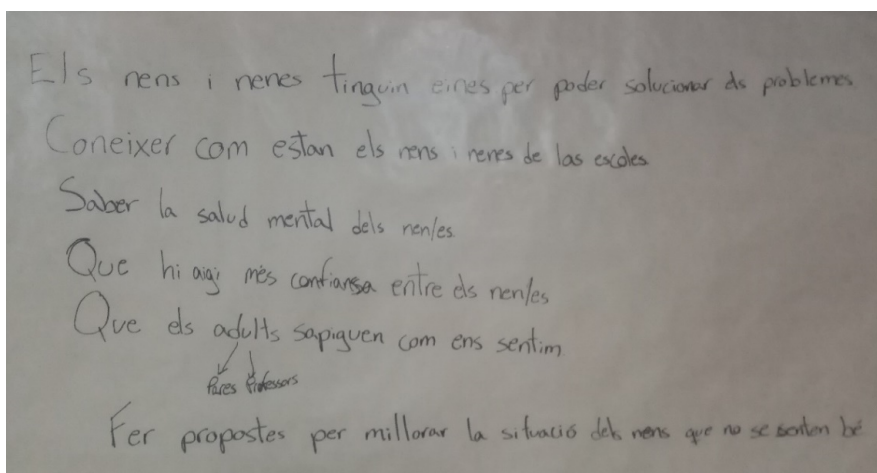 Els nens i nenes tinguin eines per poder solucionar els problemes
Coneixer com estan els nens i nenes de las escoles
Saber la salud mental dels nen/es
Que hi aigi més confiansa entre els nen/es
Que els adults sapiguen com ens sentim
Pares Professors
Fer propostes per millorar la situació dels nens que no se senten bé